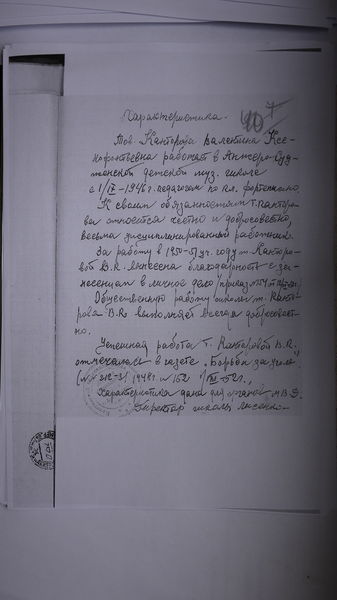 Характеристика.
Тов. Канторова Валентина Ксе-
нофонтьевна работает в Анжеро-Суд-
женской детской муз. школе
с 1/IX-1946г. педагогом по кл. фортепиано.
К своим обязанностям т. Канторо-
ва относится честно и добросовестно,
весьма дисциплинированный работник.
За работу в 1950-51 уч. году т. Канторо-
вой В.К. вынесена благодарность с за-
несением в личное дело
Общественную работу школы т. Канто-
рова В.К. выполняет всегда добросовест-
но.
Успешная работа т. Канторовой В.К.
отмечалась в газете „Борьба за уголь"
1948г. и 152
Характеристика дана для органов М.В.Д.
Директор школы